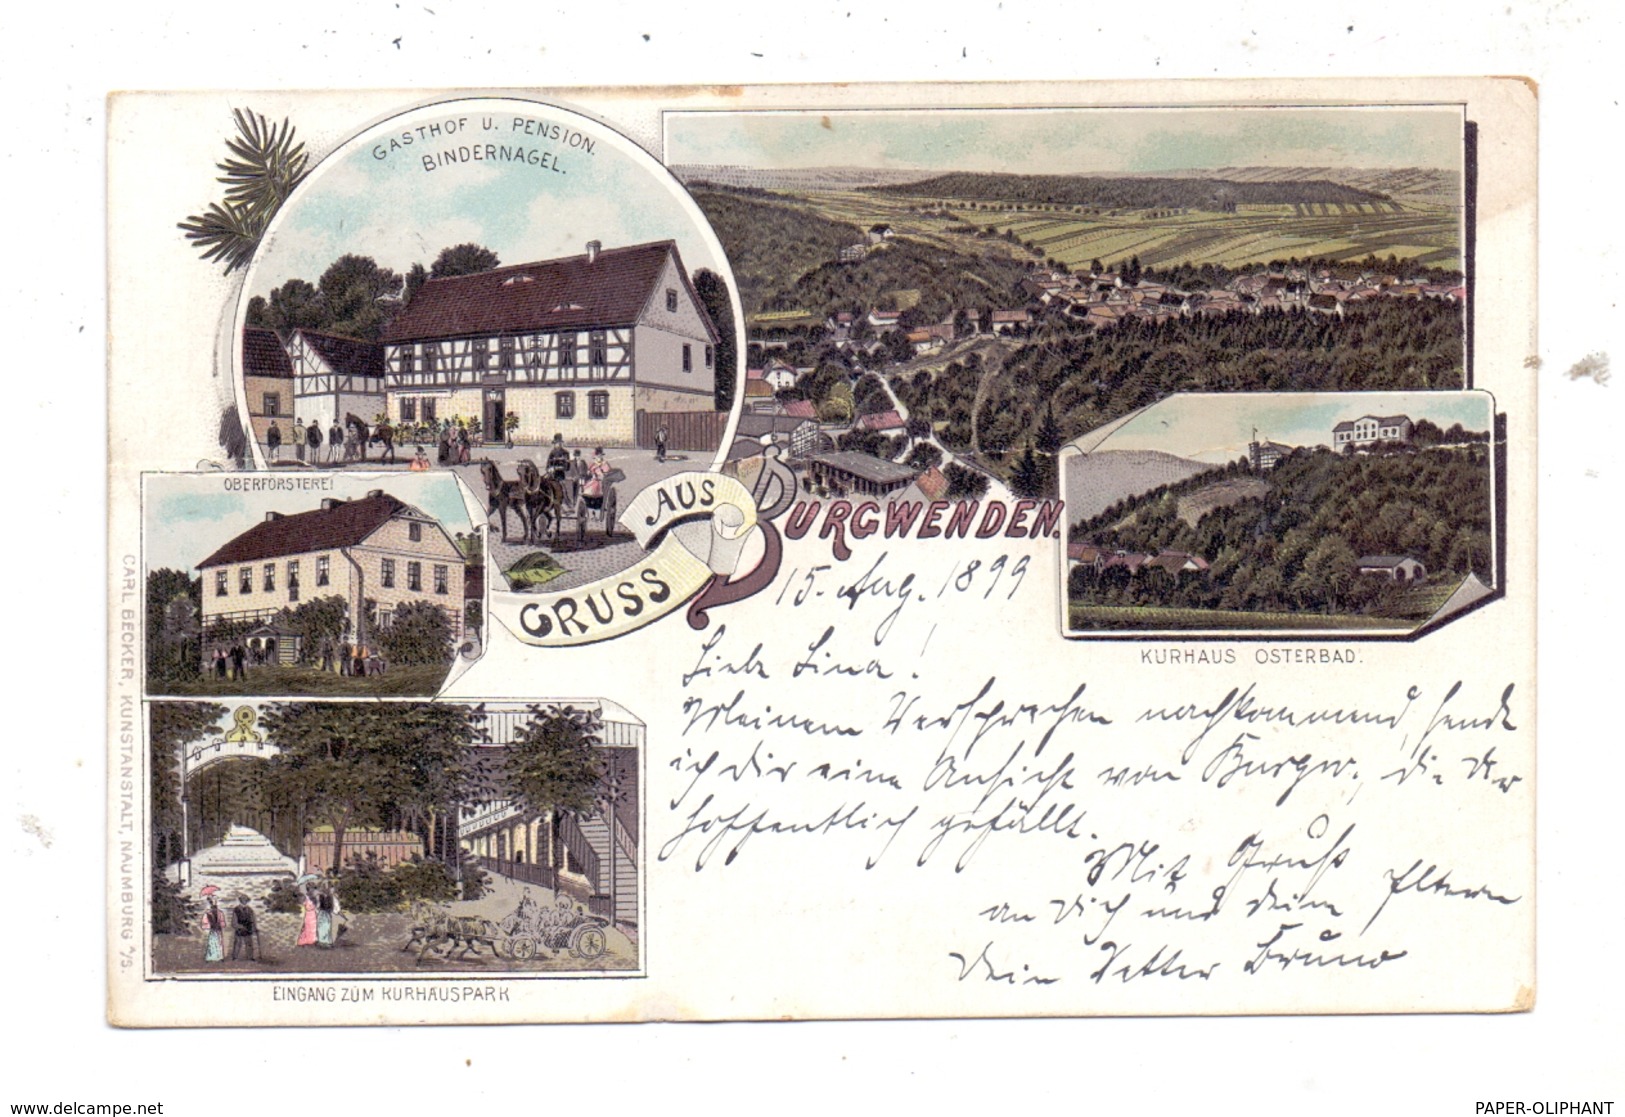 GASTHOF U. PENSION.
BINDERNAGEL.
OBERFÖRSTEREI
GRUSS AUS BURGWENDEN.
KURHAUS OSTERBAD.
EINGANG ZUM KURHAUSPARK
CARL BECKER, KUNSTANSTALT, NAUMBURG A/S.
15. Aug. 1899
Liebe Lina!
Meinem Versprechen nachkommend, sende
ich dir eine Ansicht von Burgw., die Dir
hoffentlich gefällt.
Mit Gruß
an Dich und deine Eltern
Dein Vetter Bruno
www.delcampe.net
PAPER-OLIPHANT